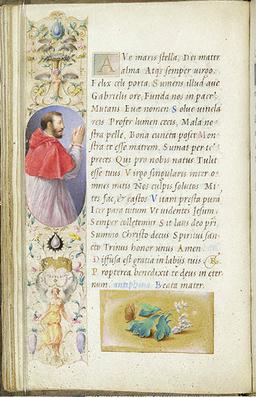 Ave maris stella, Dei mater
alma Atq; semper uirgo.
Felix celi porta Sumens illud aue
Gabrielis ore, Funda nos in pace
Mutans Euæ nomen Solue uincla
reis Profer lumen cecis, Mala no-
stra pelle, Bona cuncta posce Mon
stra te esse matrem, Sumat per te
preces Qui pro nobis natus Tulit
esse tuus Virgo singularis inter o
mnes mitis Nos culpis solutos Mi
tes fac, et castos Vitam presta puram
Iter para tutum Vt uidentes Jesum,
Semper colletemur Sit laus deo pri
Summo Christo decus Spiritui san
cto Trinus honor unus Amen.
Diffusa est gratia in labiis tuis R.
Propterea benedixit te deus in eter
num. antiphona Beata mater.